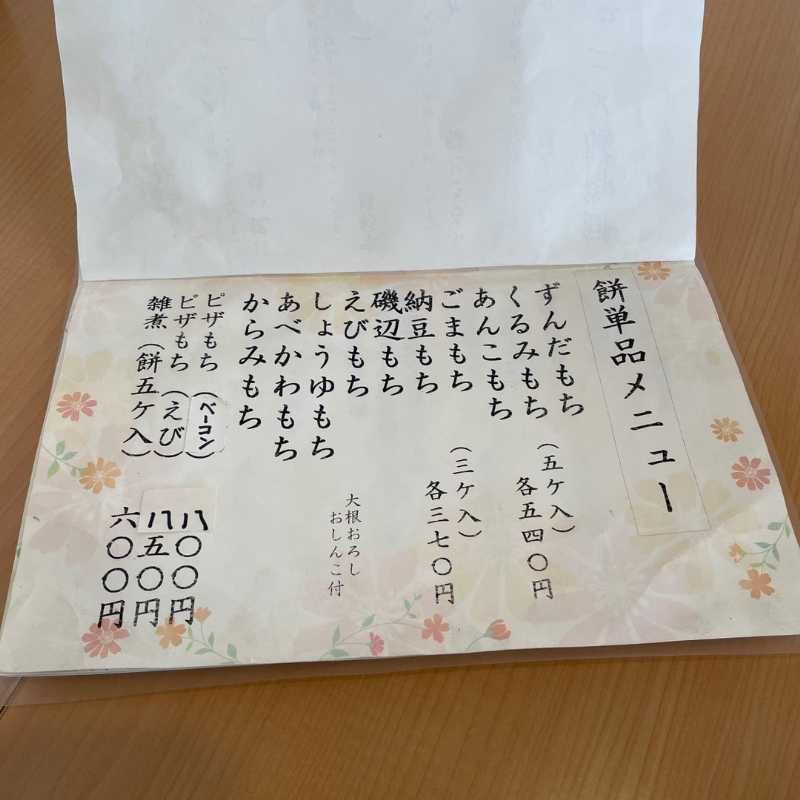 餅単品メニュー
ずんだもち
くるみもち
あんこもち
ごまもち
納豆もち
磯辺もち
えびもち
しょうゆもち
あべかわもち
からみもち
(五ケ入)
各五四〇円
(三ケ入)
各三七〇円
大根おろし
おしんこ付
ピザもち(ベーコン) 八〇〇円
ピザもち(えび) 八五〇円
雑煮(餅五ケ入) 六〇〇円